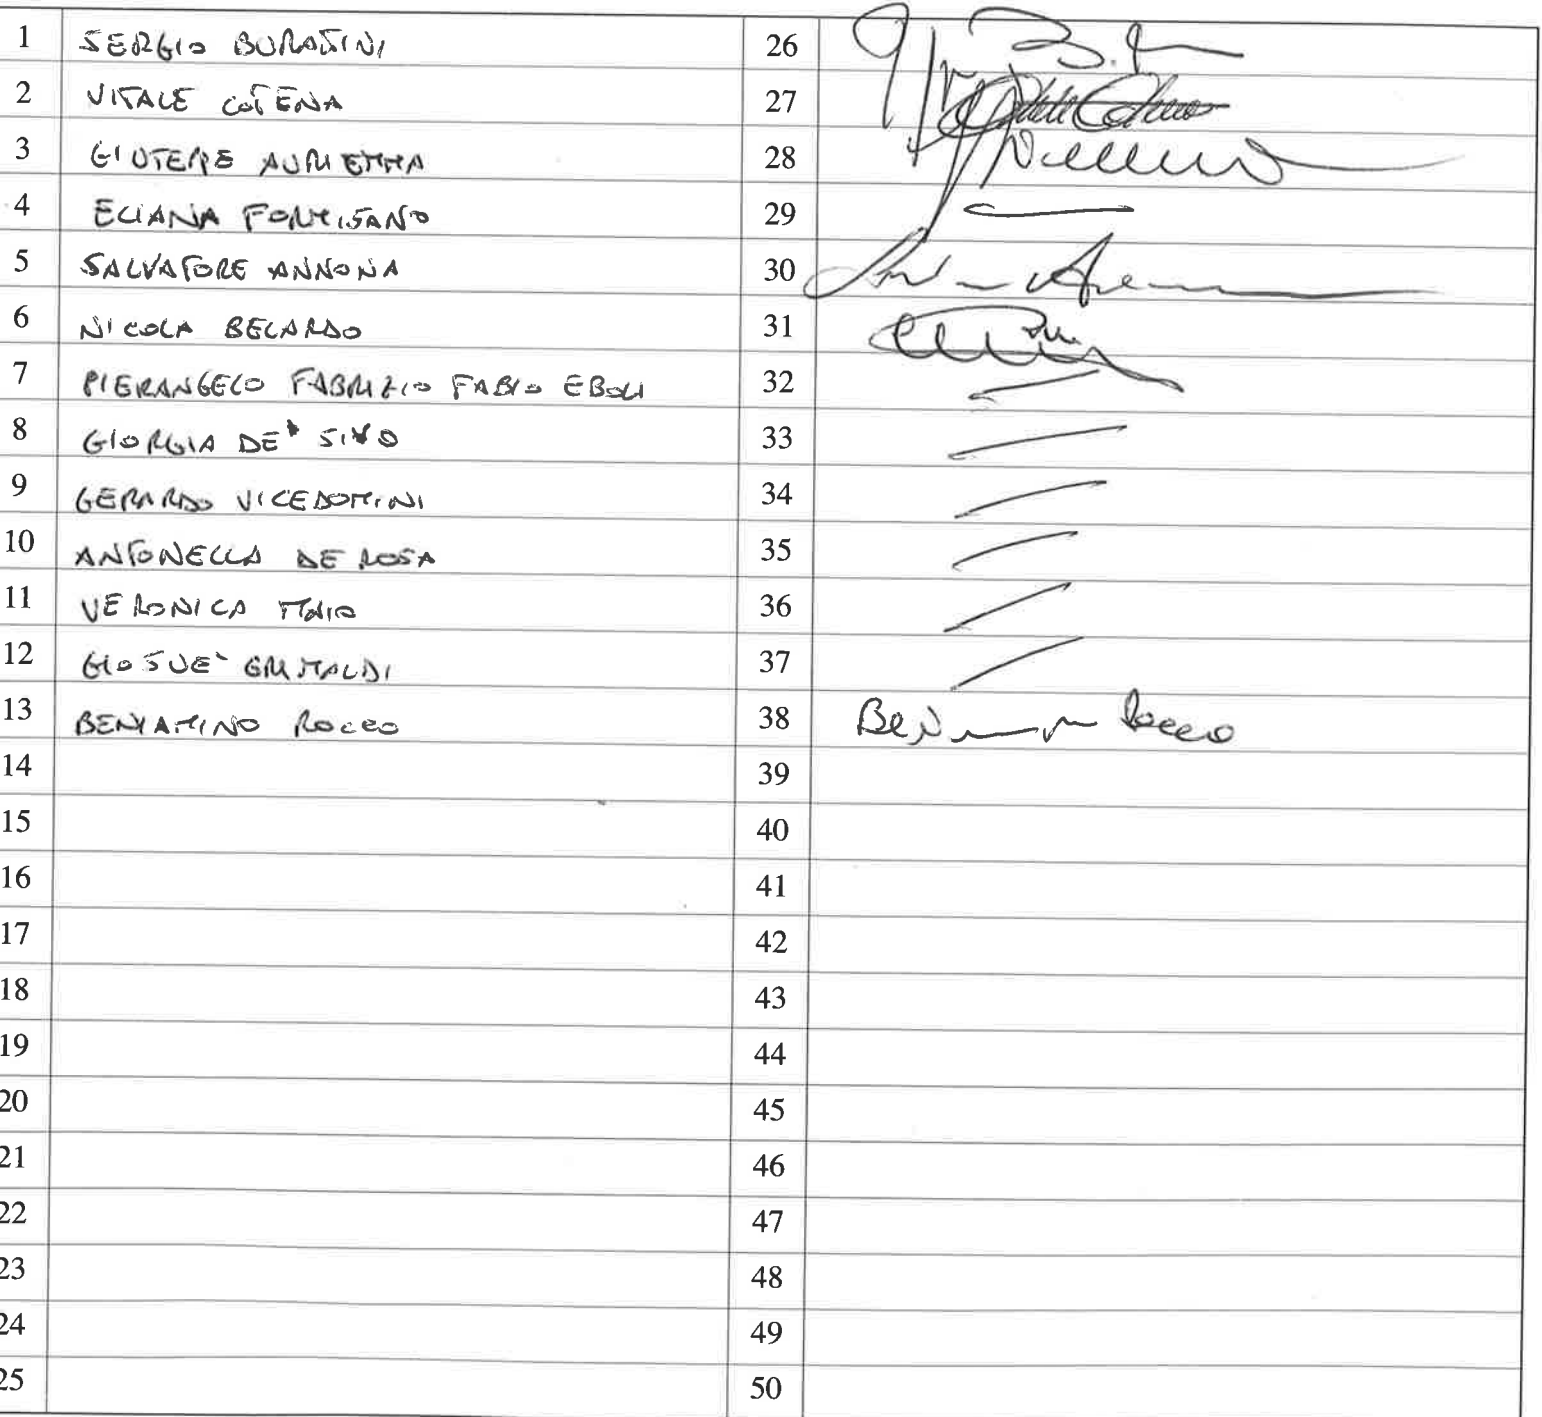 1 SERGIO BURATTINI 26
2 VITALE COTENA 27
3 GIUSEPPE AURIEMMA 28
4 ELIANA FORMISANO 29
5 SALVATORE ANNONA 30
6 NICOLA BELARDO 31
7 PIERANGELO FABRIZIO FABIO EBOLI 32
8 GIORGIA DE' SIVO 33
9 GERARDO VICEDOMINI 34
10 ANTONELLA DE ROSA 35
11 VERONICA MAIO 36
12 GIOSUE' GRIMALDI 37
13 BENIAMINO ROCCO 38 Rocco
14 39
15 40
16 41
17 42
18 43
19 44
20 45
21 46
22 47
23 48
24 49
25 50